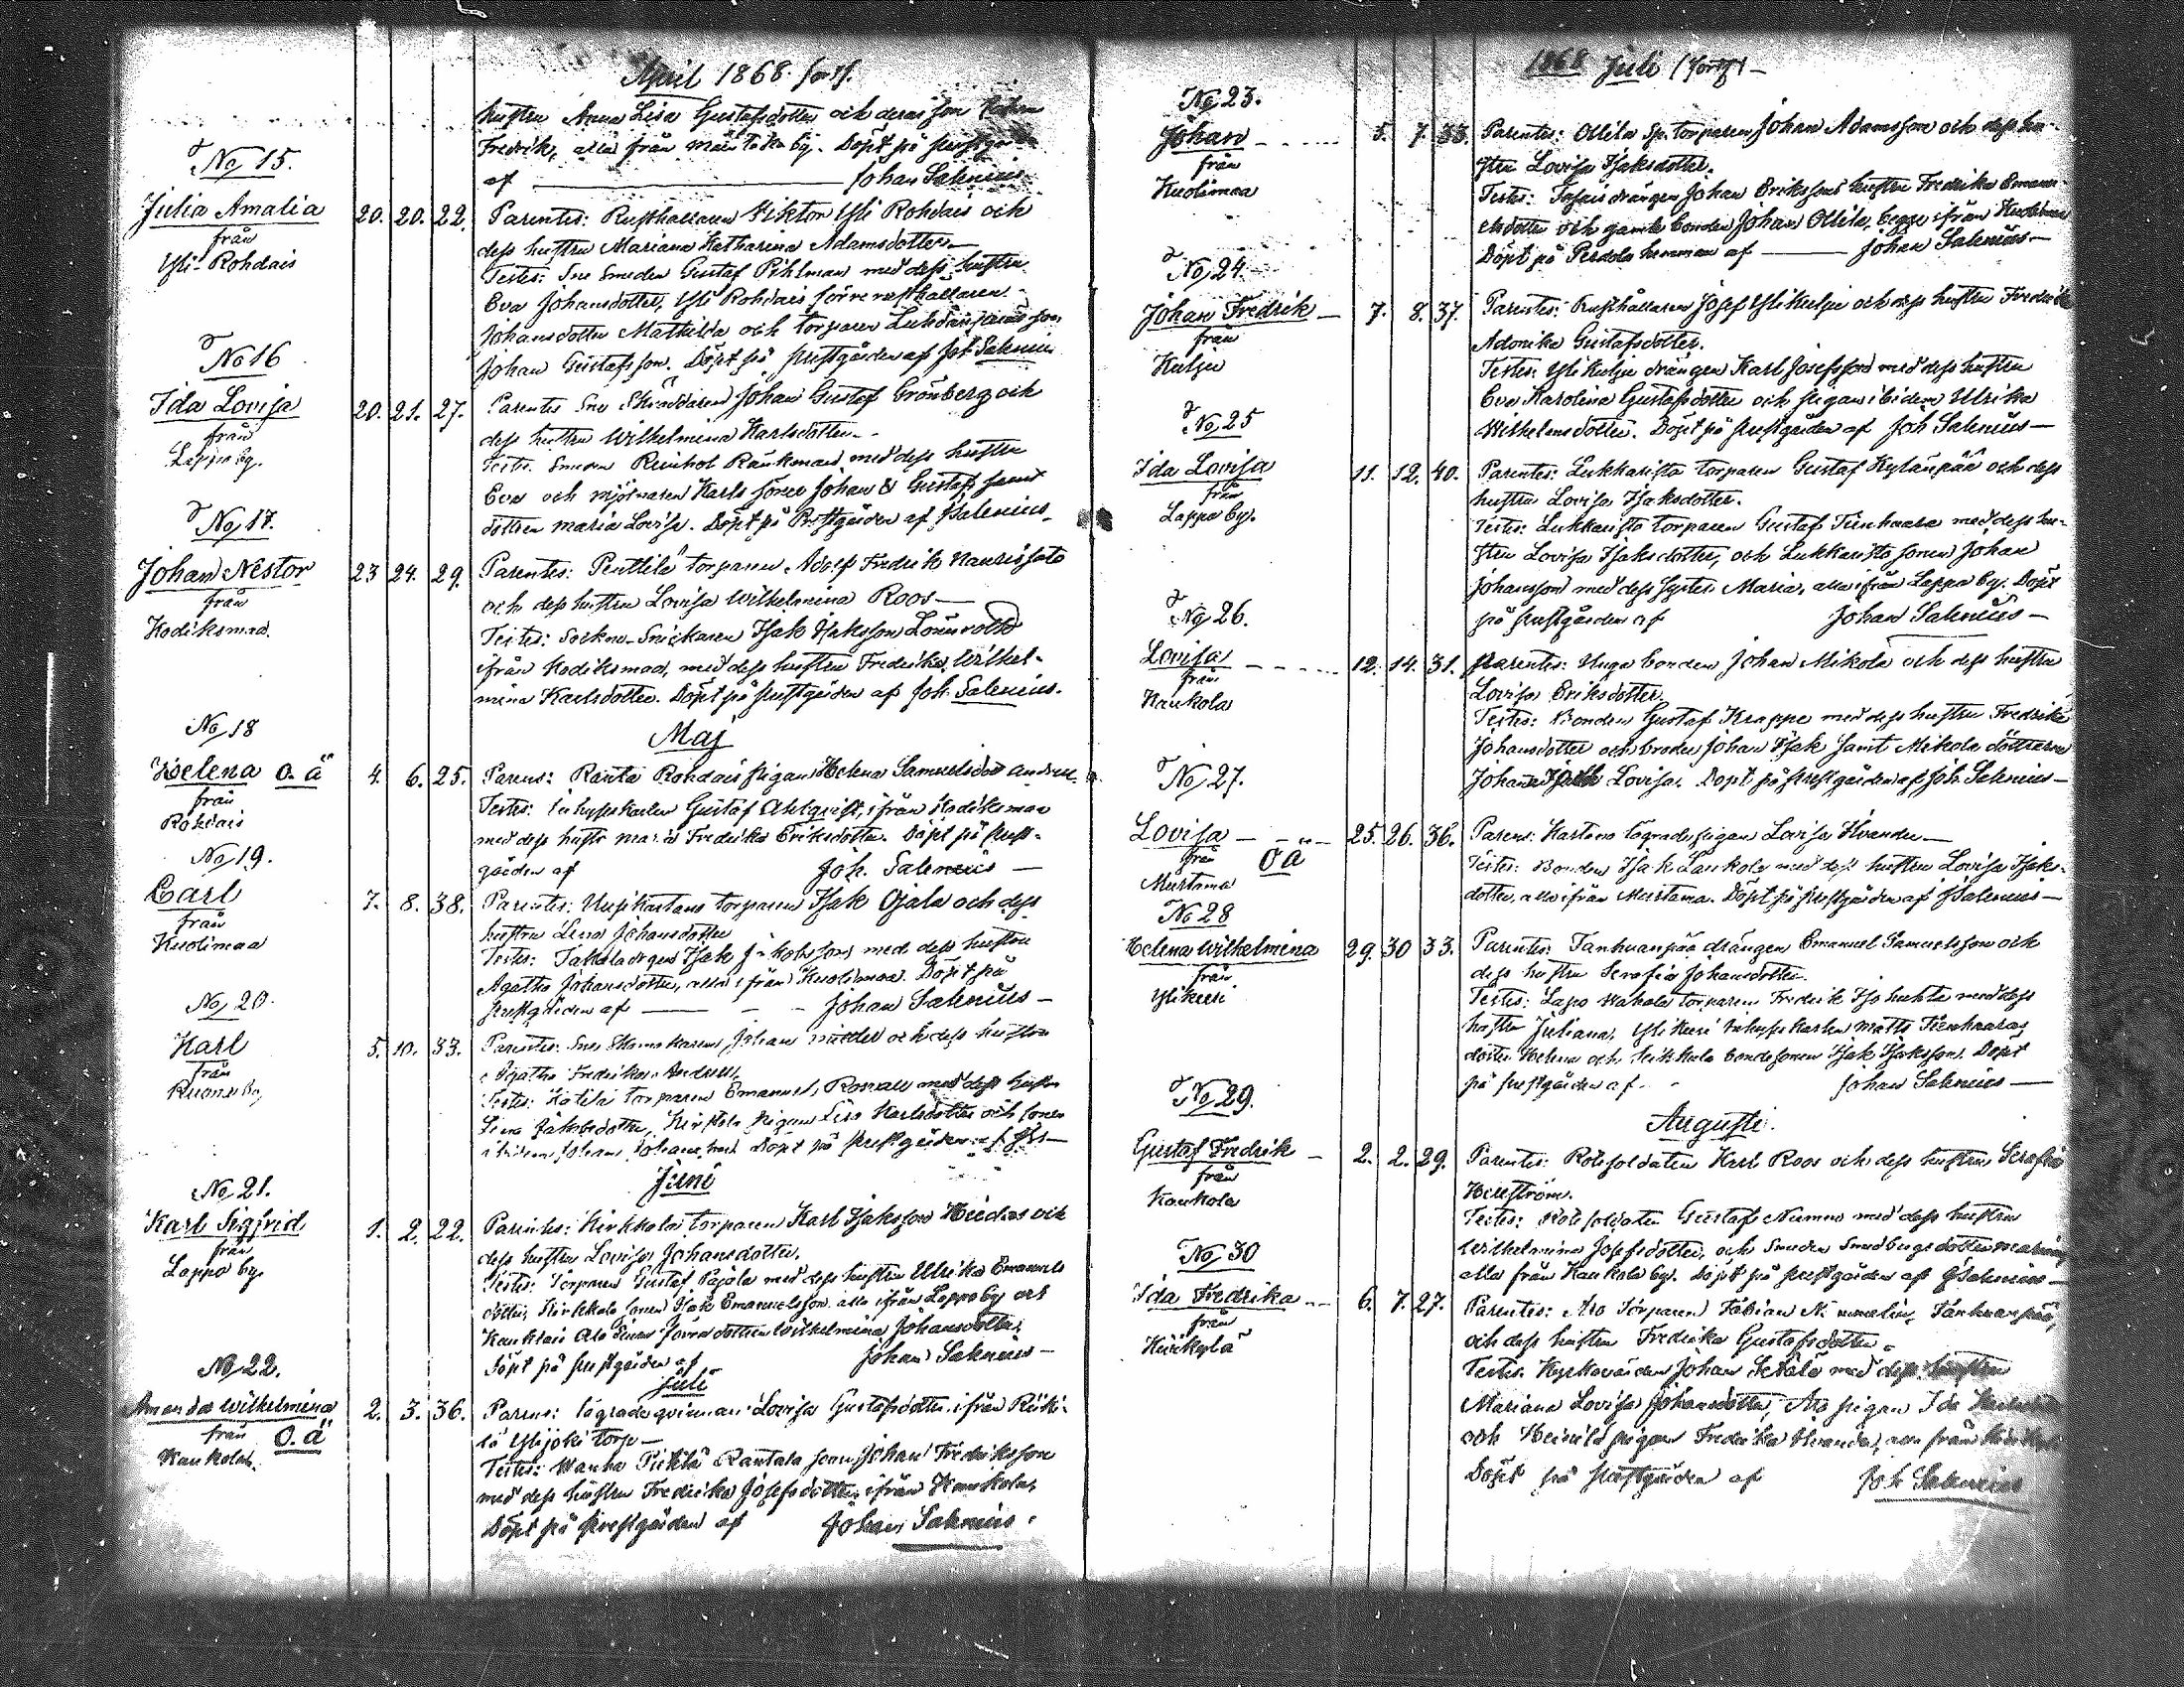 April 1868. forts.
hustru Anna Lisa Gustafsdotter och deras son
Fredrik, alla från by. Döpt på
af Johan Salenius
No 15.
Julia Amalia 20. 20. 22. Parentes: Rusthållaren Viktor Yli Rohdais och
från
Yli-Rohdais
dess hustru Mariana Katharina Adamsdotter
Testes: Sne Smeden Gustaf Pihlman med dess hustru
Eva Johansdotter, Yli Rohdais förre rusthållaren
Johansdotter Mathilda och torparen
Johan Gustafsson. Döpt på prestgården af Joh Salenius
No 16
Ida Lovisa 20. 21. 27. Parentes Sne Skräddaren Johan Gustaf Grönberg och
från
Lappo by.
dess hustru Wilhelmina Karlsdotter
Testes. Smeden med dess hustru
Eva och mjölnaren Karls söner Johan & Gustaf samt
dottren Maria Lovisa. Döpt på Prestgården af J Salenius
No 17.
Johan Nestor 23 24. 29. Parentes: Penttilä torparen Adolf Fredrik
från
Kodiksmaa.
och dess hustru Lovisa Wilhelmina Roos
Testes: Sockne-Snickaren Isak Isaksson Lönnroth
ifrån Kodiksmaa, med dess hustru Fredrika Wilhel-
mina Karlsdotter. Döpt på prestgården af Joh. Salenius.
Maj
No 18
Helena O. Ä 4. 6. 25. Parens: Ranta Rohdais pigan Helena Samuelsdotter
från
Rohdais
Testes: Gustaf Ahlqvist, ifrån Kodiksmaa
med dess hustru Maria Fredrika Eriksdotter. Döpt på prest-
gården af Joh. Salenius
No 19.
Carl 7. 8. 38. Parentes: torparen Isak Ojala och dess
från
Kuolimaa
hustru Lena Johansdotter
Testes: Isak Jakobsson med dess hustru
Agatha Johansdotter, alla ifrån Kuolimaa. Döpt på
prestgården af Johan Salenius
No 20.
Karl 5. 10. 33. Parentes: Sne Skomakaren Johan och dess hustru
från
Agatha Fredrika
Testes: torparen Emanuel med dess hustru
Lena Jakobsdotter, pigan Lisa Karlsdotter och sonen
Johan Döpt på prestgården af
Juni
No 21.
Karl Sigfrid 1. 2. 22. Parentes: Kirkkola torparen Karl Isaksson och
från
Lappo by
dess hustru Lovisa Johansdotter.
Testes: Torparen Gustaf Pajola med dess hustru Ulrika Emanuels
dotter, Kirkkola sonen Isak Emanuelsson alla ifrån Lappo by och
Kauklais dottren Wilhelmina Johansdotter.
Döpt på prestgården af Johan Salenius
Juli
No 22.
Amanda Wilhelmina 2. 3. 36. Parens: lägrade qvinnan Lovisa Gustafsdotter ifrån
från O. Ä
Kaukola.
Ylijoki torp
Testes: Rantala sonen Johan Fredriksson
med dess hustru Fredrika Josefsdotter, ifrån Kaukola,
Döpt på prestgården af Johan Salenius.
1868 Juli (forts)
No 23.
Johan 5. 7. 33. Parentes: Ollila Sp. torparen Johan Adamsson och dess hu-
från
Kuolimaa
stru Lovisa Isaksdotter.
Testes: drängen Johan Erikssons hustru Fredrika Emanu-
elsdotter och gamle bonden Johan Ollila, begge ifrån Kuolimaa
Döpt på hemman af Johan Salenius
No 24.
Johan Fredrik 7. 8. 37. Parentes: Rusthållaren Josef Yli Kulju och dess hustru Fredrika
från
Kulju
Adonika Gustafsdotter.
Testes: Yli Kulju drängen Karl Josefsson med dess hustru
Eva Karolina Gustafsdotter och pigan ibidem Ulrika
Wilhelmsdotter. Döpt på prestgården af Joh Salenius
No 25
Ida Lovisa 11. 12. 40. Parentes: Lukkarista torparen Gustaf Kylänpää och dess
från
Lappo by.
hustru Lovisa Isaksdotter.
Testes: Lukkarista torparen Gustaf Tienhaara med dess hu-
stru Lovisa Isaksdotter, och Lukkarista sonen Johan
Johansson med dess syster Maria, alla ifrån Lappo by. Döpt
på prestgården af Johan Salenius
No 26.
Lovisa 12. 14. 31. Parentes: Unga bonden Johan Mikola och dess hustru
från
Kaukola
Lovisa Eriksdotter.
Testes: Bonden Gustaf Krappe med dess hustru Fredrika
Johansdotter och broder Johan Isak samt Mikola döttrarne
Johanna Lovisa. Döpt på prestgården af Joh. Salenius
No 27.
Lovisa 25. 26. 36. Parens: lägrade pigan Lovisa
från O Ä
Murtama
Testes: Bonden Isak Laukola med dess hustru Lovisa Isaks-
dotter, alla ifrån Murtama. Döpt på prestgården af J Salenius
No 28
Helena Wilhelmina 29. 30 33. Parentes: Tanhuanpää drängen Emanuel Samuelsson och
från
Ylikeesi
dess hustru Serafia Johansdotter.
Testes: torparen Fredrik med dess
hustru Juliana, Matts Tienhaaras
dotter Helena och bondesonen Isak Isaksson. Döpt
på prestgården af Johan Salenius
Augusti.
No 29.
Gustaf Fredrik 2. 2. 29. Parentes: Rotesoldaten Karl Roos och dess hustru Serafia
från
Kaukola
Hellström.
Testes: Rotesoldaten Gustaf med dess hustru
Wilhelmina Josefsdotter, och Smeden dotter
alla från Kaukola by. Döpt på prestgården af J Salenius
No 30
Ida Fredrika 6. 7. 27. Parentes: Aro Torparen Fabian Tanhuanpää,
från
och dess hustru Fredrika Gustafsdotter.
Testes. Kyrkovärden Johan Setälä med dess hustru
Mariana Lovisa Johansdotter, Aro pigan Ida
och Heinilä pigan Fredrika alla från
Döpt på prestgården af Joh Salenius